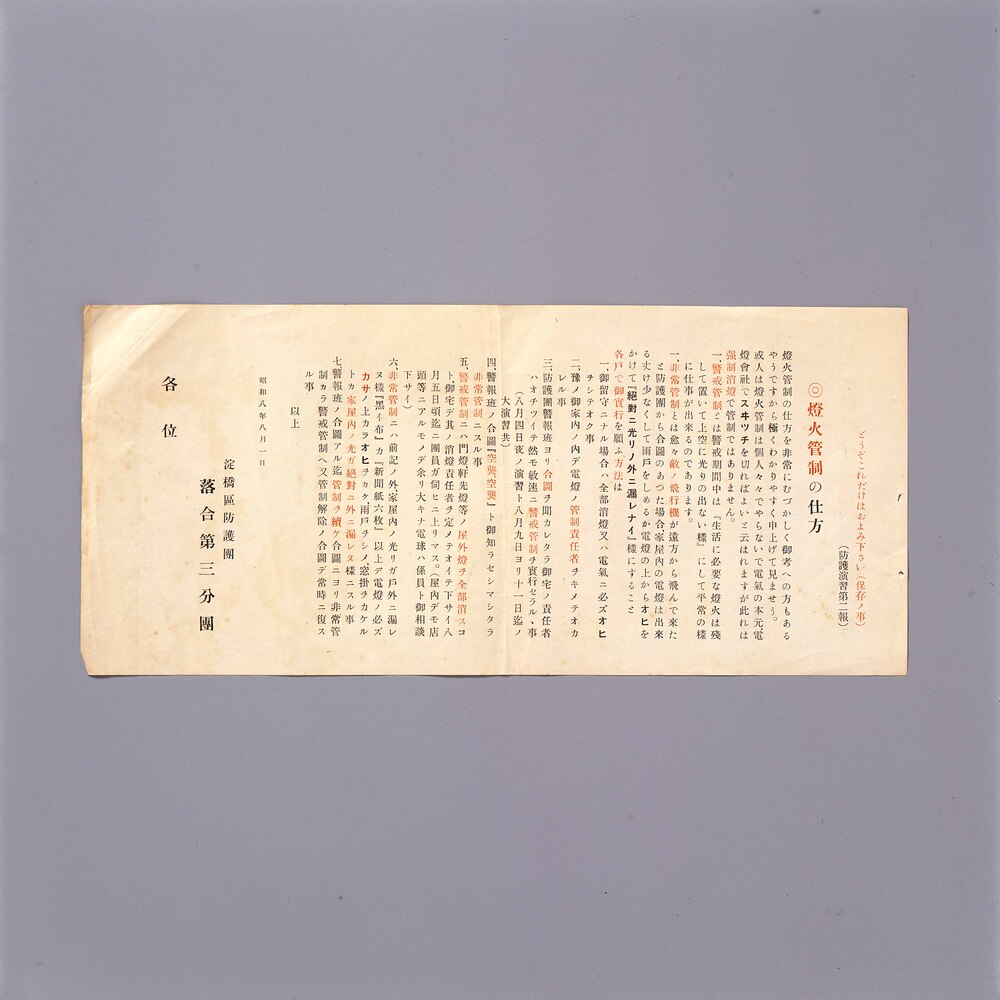 どうぞこれだけはおよみ下さい(保存ノ事)
(防護演習第二報)
◎燈火管制の仕方
燈火管制の仕方を非常にむづかしく御考への方もある
やうですから極くわかりやすく申上げて見ませう。
或人は燈火管制は個人々々でやらないで電氣の本元電
燈會社でスヰツチを切ればよいと云はれますが此れは
强制消燈で管制ではありません。
一、警戒管制とは警戒期間中は『生活に必要な燈火は殘
して置いて上空に光りの出ない樣』にして平常の樣
に仕事が出來るのであります。
一、非常管制とは愈々敵ノ飛行機が遠方から飛んで來た
と防護團から合圖のあつた場合家屋內の電燈は出來
る丈け少なくして雨戶をしめるか電燈の上からオヒを
かけて『絕對ニ光リノ外ニ漏レナイ』樣にすること
各戶で御實行を願ふ方法は
一、御留守ニナル場合ハ全部消燈又ハ電氣ニ必ズオヒ
ヲシテオク事
二、豫メ御家內ノ內デ電燈ノ管制責任者ヲキメテオカ
レル事
三、防護團警報班ヨリ合圖ヲ聞カレタラ御宅ノ責任者
ハオチツイテ然モ敏速ニ警戒管制ヲ實行セラル、事
(八月四日夜ノ演習ト八月九日ヨリ十一日迄ノ
大演習共)
四、警報班ノ合圖『空襲空襲』ト御知ラセシマシタラ
非常管制ニスル事
五、警戒管制ニハ門燈軒先燈等ノ屋外燈ヲ全部消スコ
ト、御宅デ其ノ消燈責任者ヲ定メテオイテ下サイ八
月五日頃迄ニ團員ガ伺ヒニ上リマス。(屋內デモ店
頭等ニアルモノデ余リ大キナ電球ハ係員ト御相談
下サイ)
六、非常管制ニハ前記ノ外家屋內ノ光リガ戶外ニ漏レ
ヌ樣『黑イ布』カ『新聞紙六枚』以上デ電燈ノ必ズ
カサノ上カラオヒヲカケ雨戶ヲシメ、窓掛ヲカケル
トカ家屋內ノ光ガ絕對ニ外ニ漏レヌ樣ニスル事
七、警報班ノ合圖アル迄管制ヲ續ケ合圖ニヨリ非常管
制カラ警戒管制ヘ又管制解除ノ合圖デ常時ニ復ス
ル事
以上
昭和八年八月一日
淀橋區防護團
落合第三分團
各位